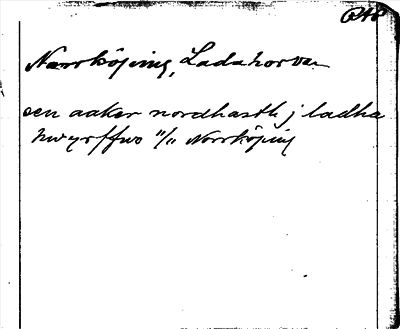 Norrköping, Ladahorva
een aaker nordhasth j ladha
hwyrffwo "/" Norrköping